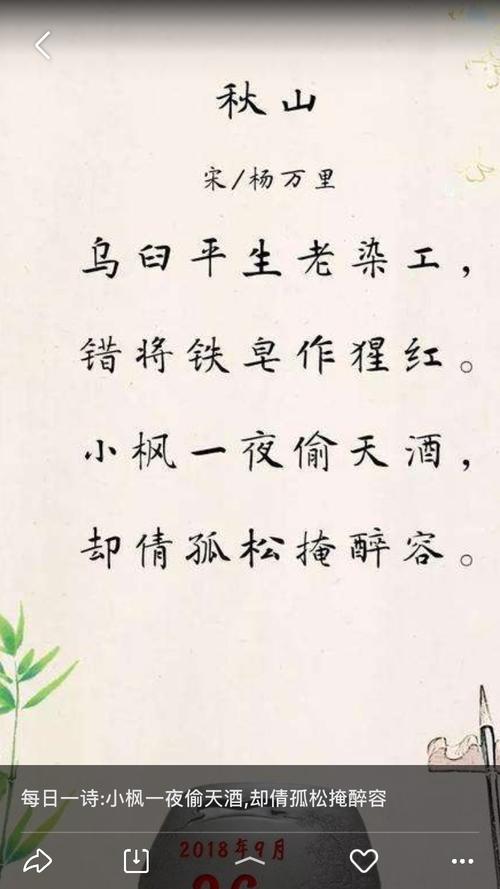 秋山
宋/杨万里
乌臼平生老染工，
错将铁皂作猩红。
小枫一夜偷天酒，
却倩孤松掩醉容。
每日一诗:小枫一夜偷天酒,却倩孤松掩醉容
2018年9月